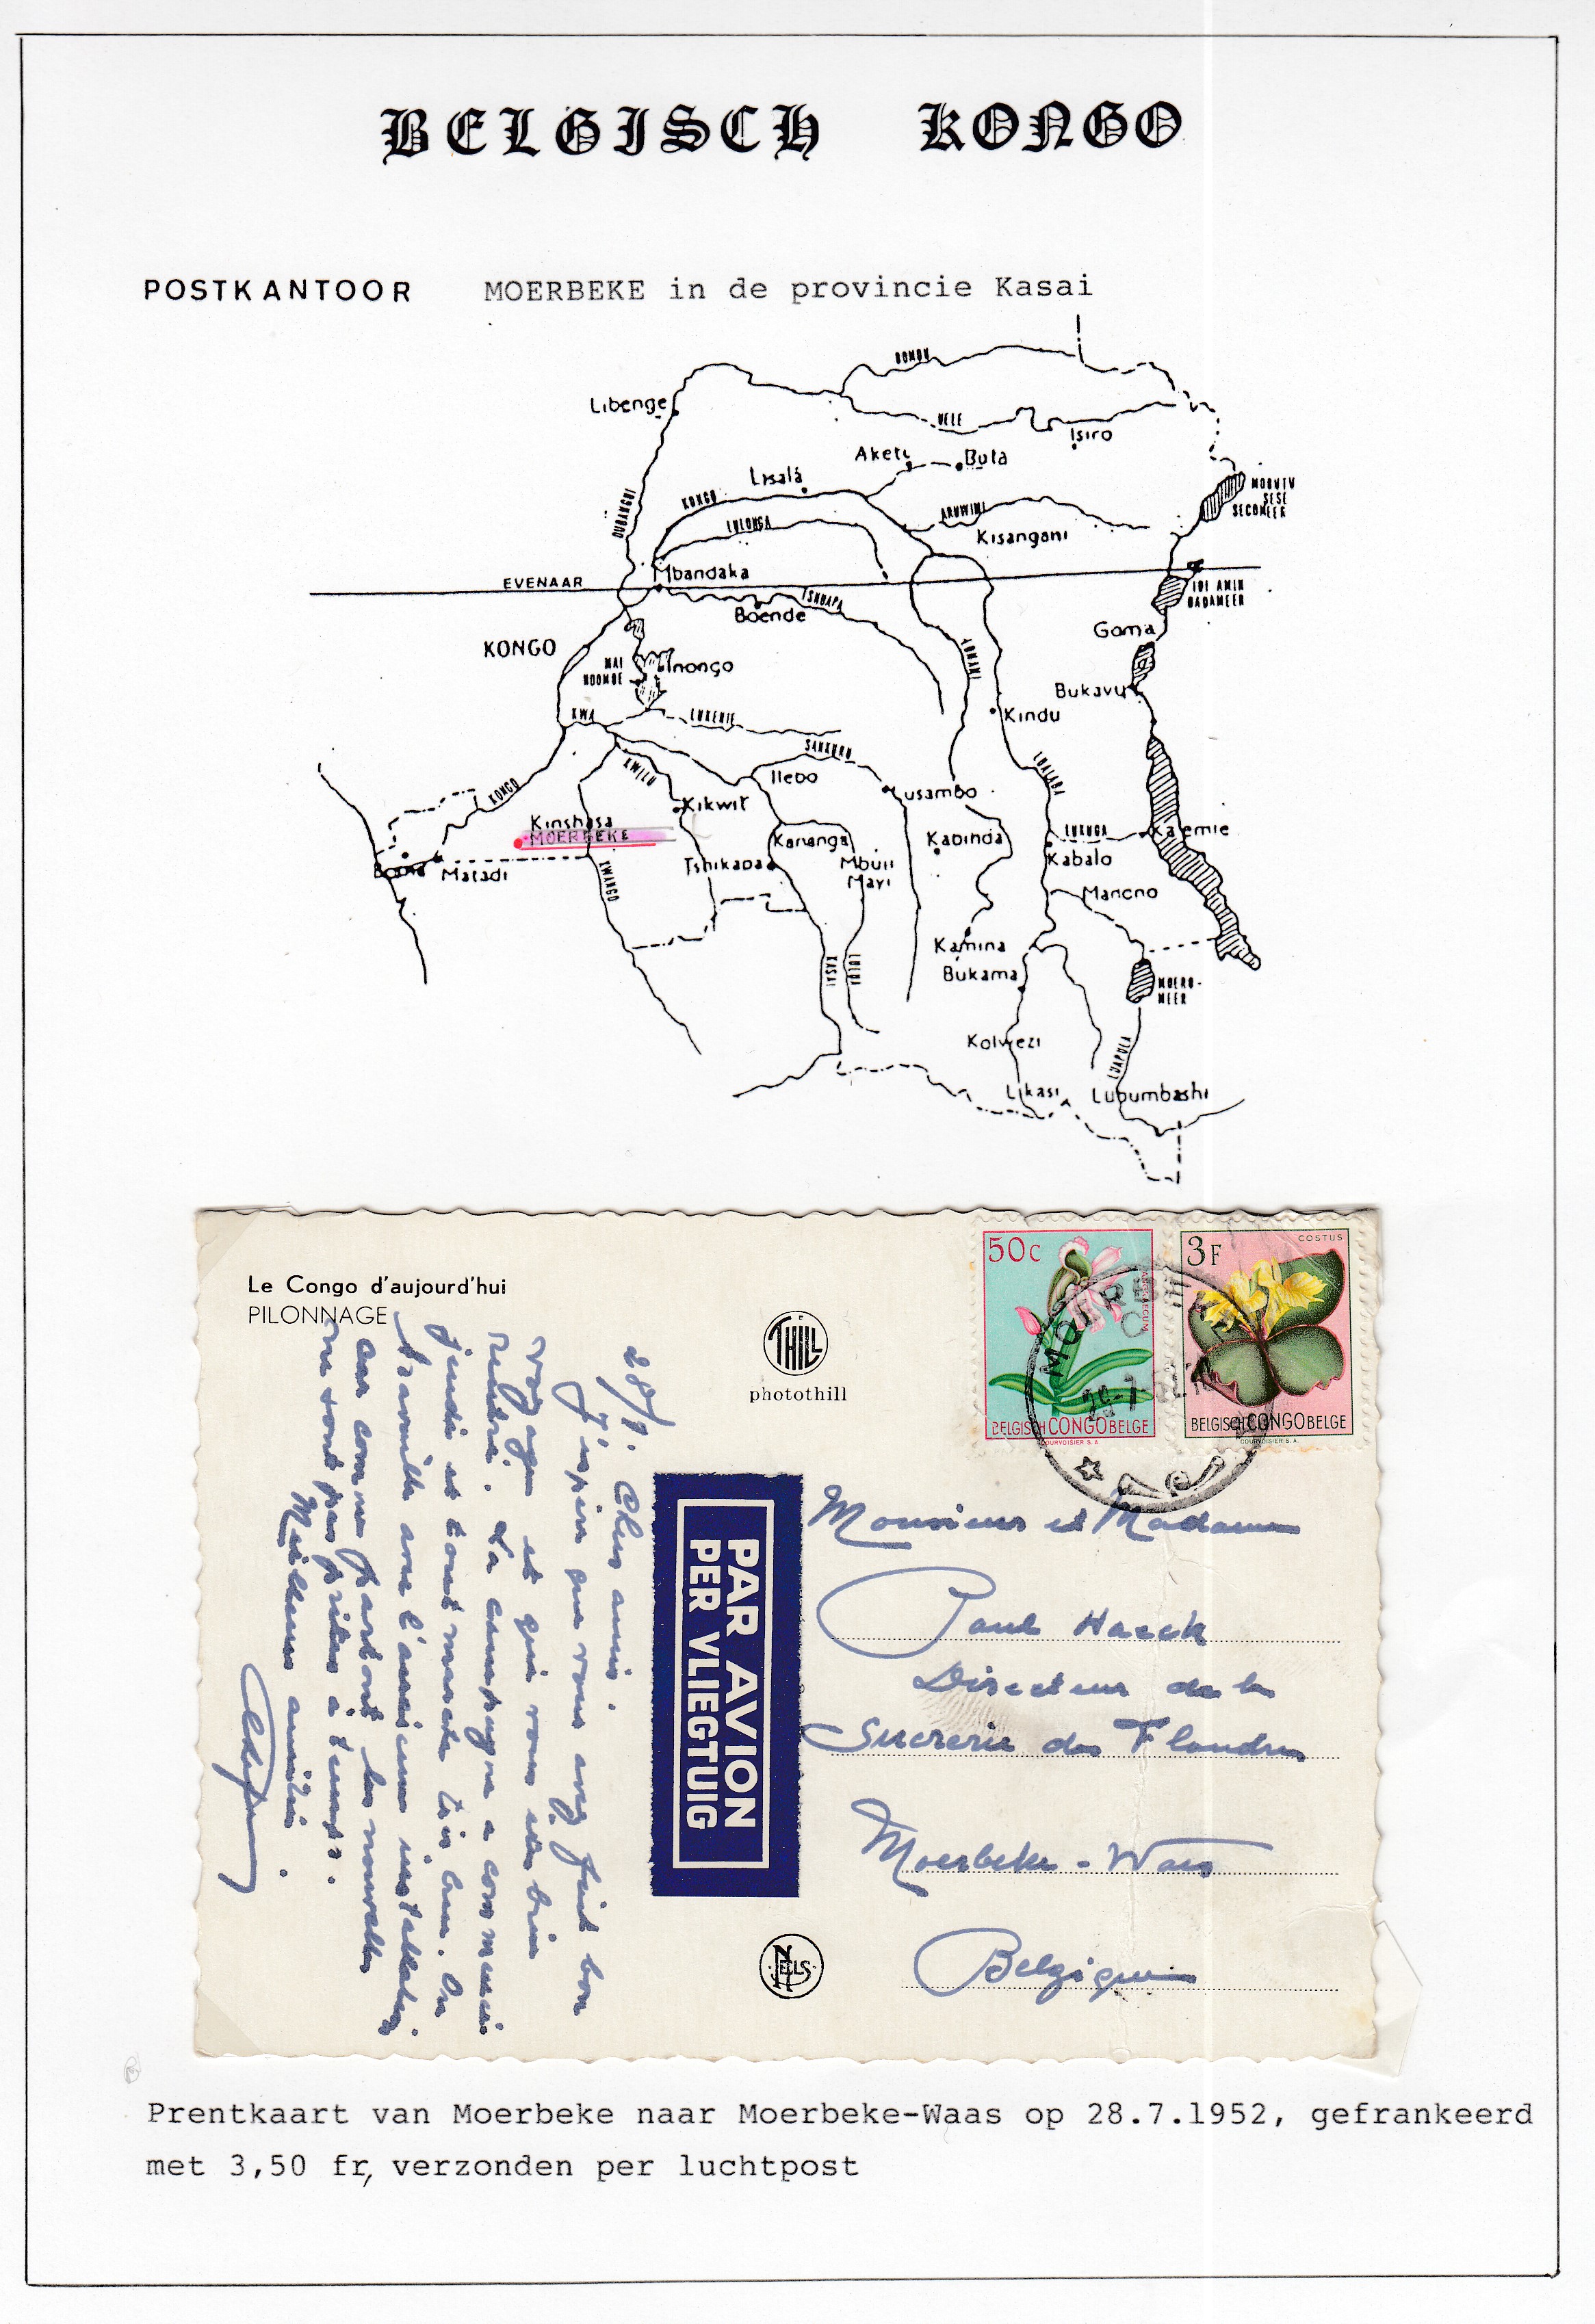 BELGISCH KONGO
POSTKANTOOR MOERBEKE in de provincie Kasai
BOMU
Libenge
UELE
Isiro
Aketi
Buta
Lisala
MOBUTU
SESE
SECOMEER
KONGO
OUBANGUI
LULONGA
ARUWIMI
Kisangani
Mbandaka
EVENAAR
IDI AMIN
DADAMEER
TSHUAPA
Boende
Goma
KONGO
MAI
NDOMBE
Inongo
LOMAMI
Bukavu
KWA
LUKENIE
Kindu
SANKURU
KWILU
Ilebo
LUALABA
KONGO
Lusambo
Kikwit
Kinshasa
MOERBEKE
Kananga
Kabinda
LUKUGA
Kalemie
Boma
Matadi
KWANGO
Tshikapa
Mbuji
Mayi
Kabalo
Manono
Kamina
KASAI
LULUA
Bukama
MOERO-
MEER
Kolwezi
LUAPULA
Likasi
Lubumbashi
Le Congo d'aujourd'hui
PILONNAGE
THILL
photothill
50c
ANGRAECUM
BELGISCH CONGO BELGE
COURVOISIER S.A.
3F
COSTUS
BELGISCH CONGO BELGE
COURVOISIER S.A.
MOERBEKE
28-7-52
28/7. Chers amis.
J'espère que vous avez fait bon
voyage et que vous êtes bien
rentrés. La campagne a commencé
jeudi et tout marche très bien. On
travaille avec l'ancienne installation
car comme partout les nouvelles
ne sont pas prêtes à temps.
Meilleures amitiés.
PAR AVION
PER VLIEGTUIG
Monsieur et Madame
Paul Haeck
Directeur de la
Sucrerie des Flandres
Moerbeke-Waes
Belgique
NELS
Prentkaart van Moerbeke naar Moerbeke-Waas op 28.7.1952, gefrankeerd
met 3,50 fr, verzonden per luchtpost